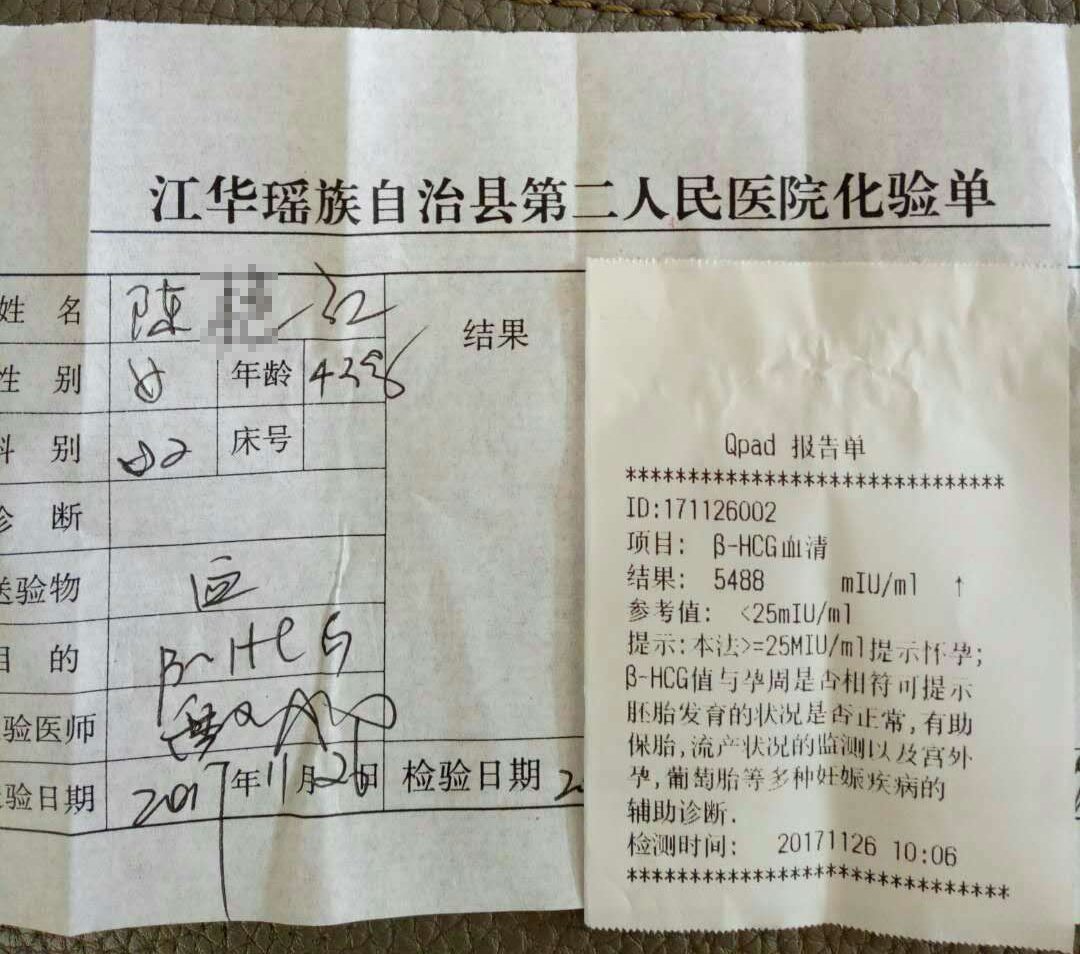 江华瑶族自治县第二人民医院化验单
姓 名 陈 红
性 别 女 年龄 43岁
科 别 妇 床号
诊 断
送验物 血
目 的 β-HCG
验医师
验日期 2017年11月26日
结果
检验日期 2
Qpad 报告单
******************************
ID:171126002
项目: β-HCG血清
结果: 5488 mIU/ml ↑
参考值: <25mIU/ml
提示:本法>=25MIU/ml提示怀孕;
β-HCG值与孕周是否相符可提示
胚胎发育的状况是否正常,有助
保胎,流产状况的监测以及宫外
孕,葡萄胎等多种妊娠疾病的
辅助诊断.
检测时间: 20171126 10:06
******************************